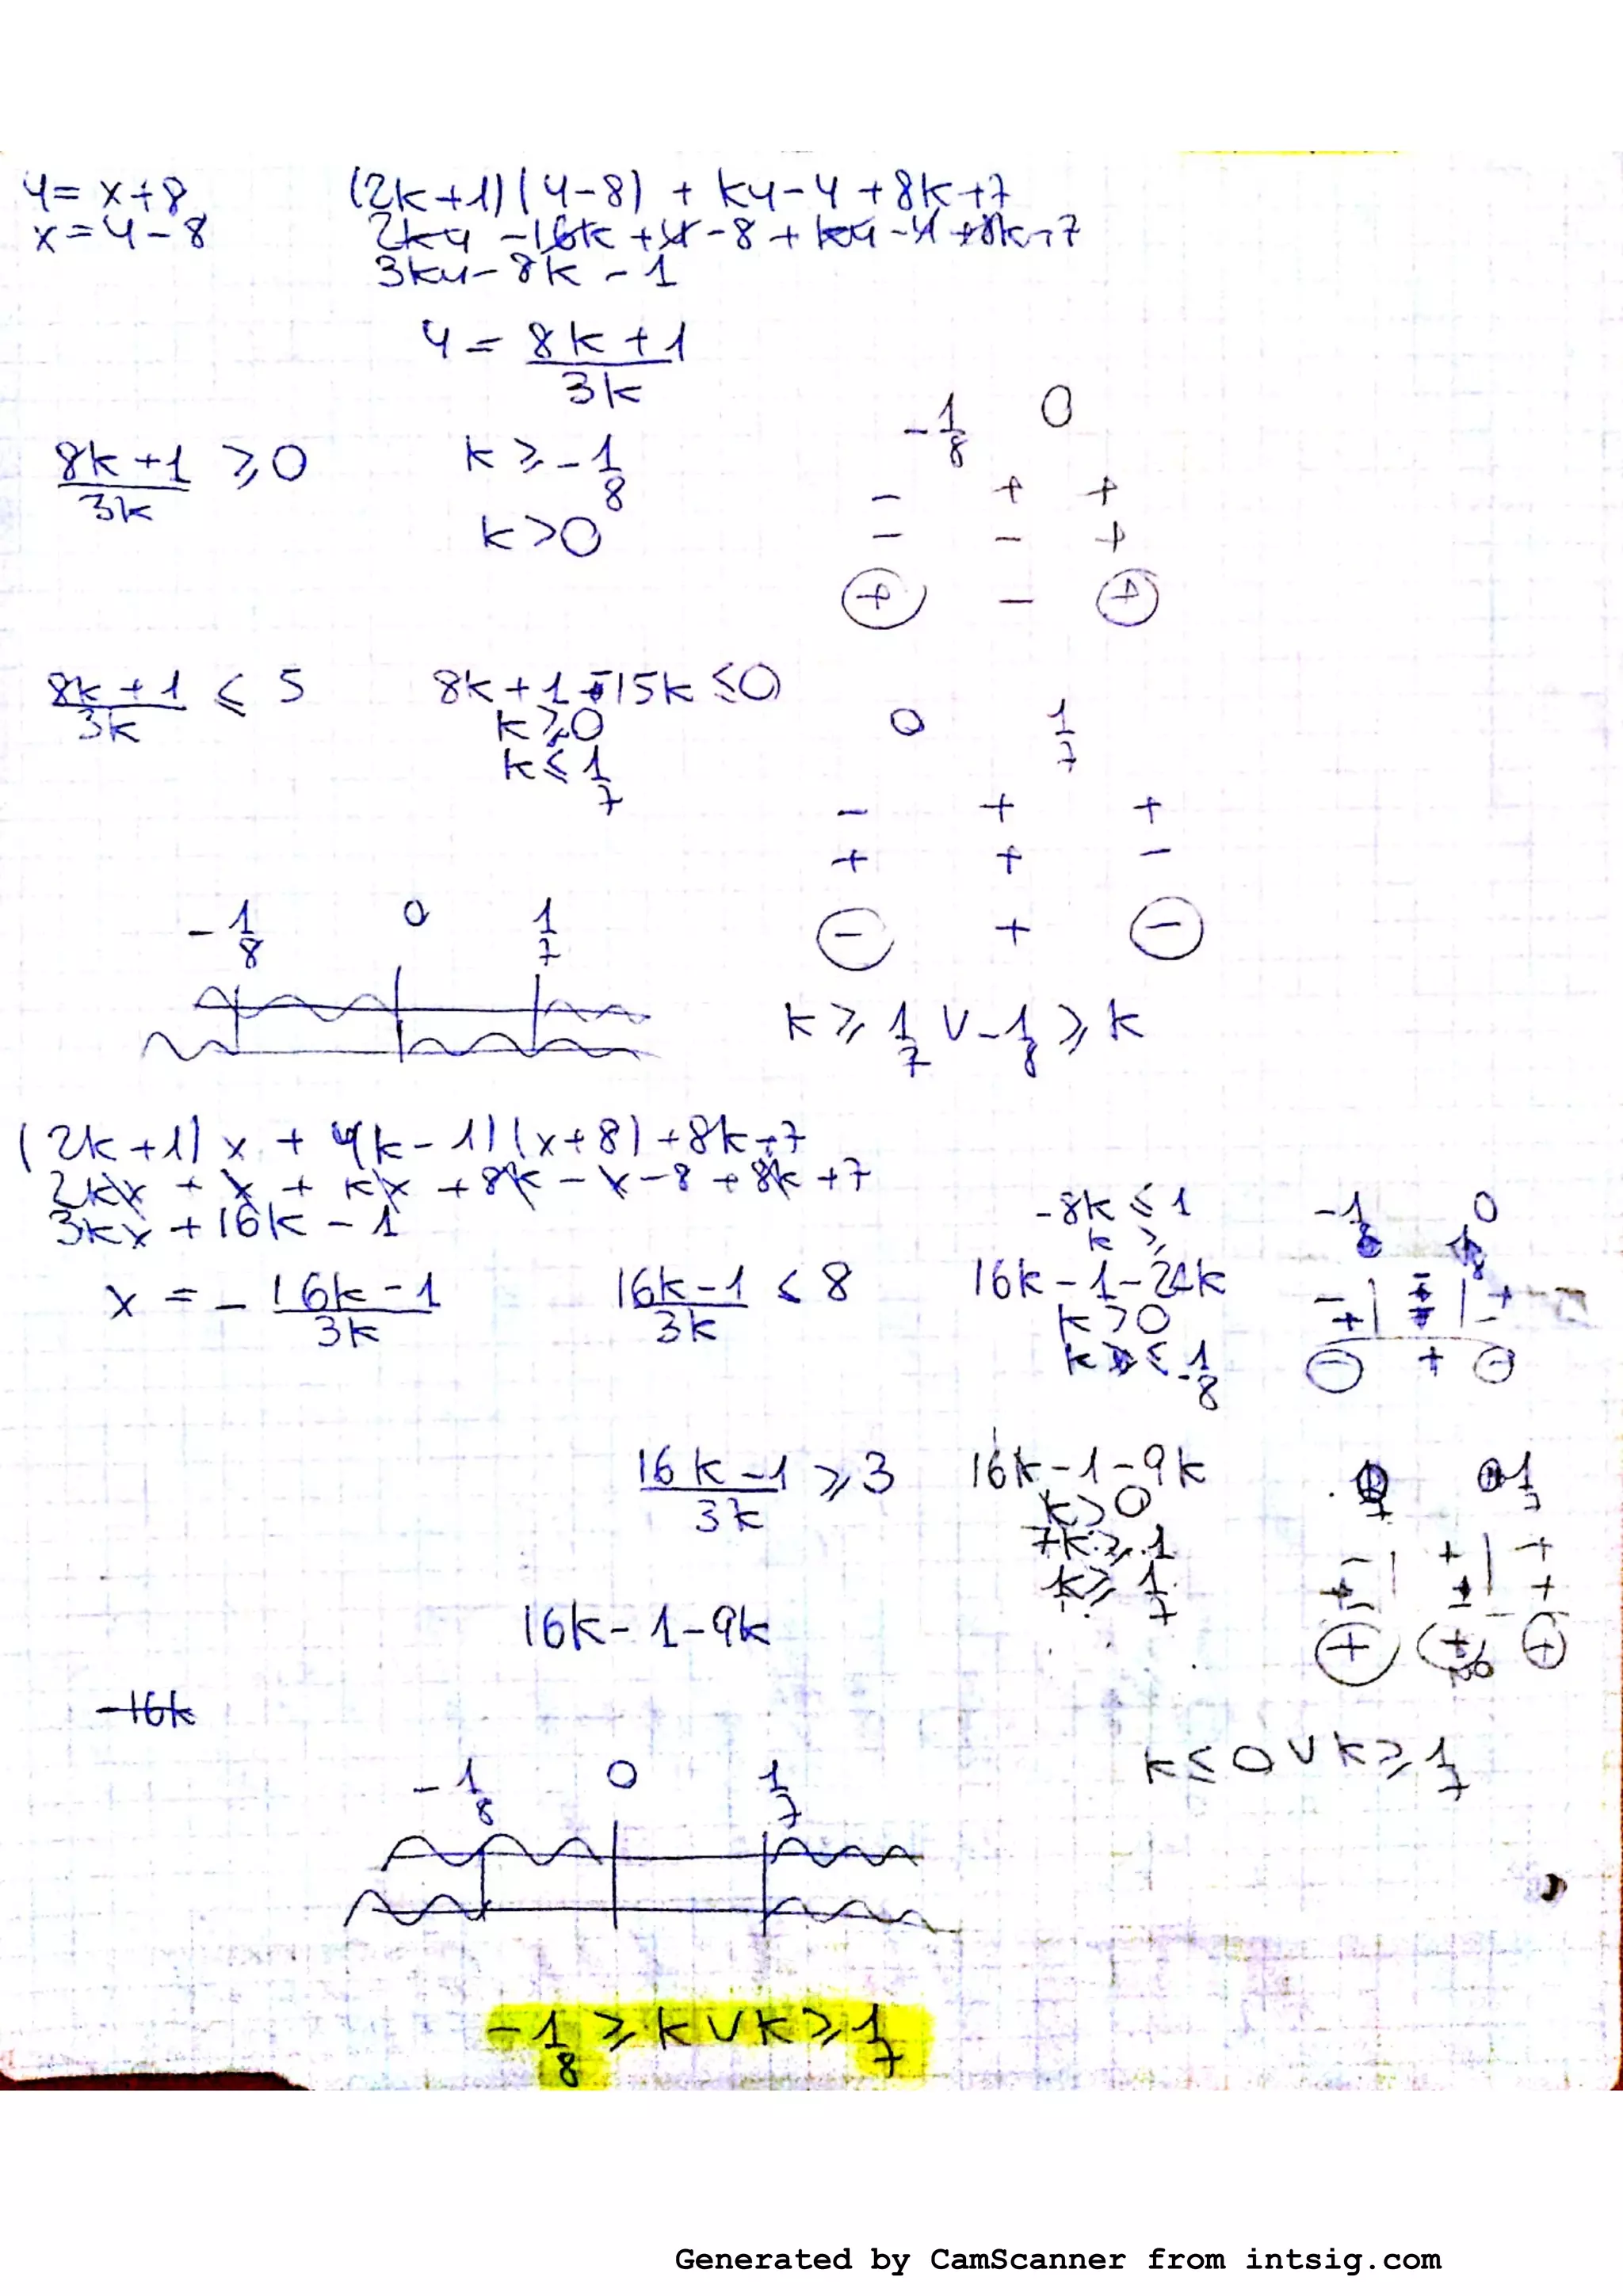 y = x+8
x = y - 8
(2k+1)(y-8) + ky - y + 8k+7
2ky - 16k + y - 8 + ky - y + 8k+7
3ky - 8k - 1
y = 8k+1 / 3k
8k+1 / 3k ≥ 0
k ≥ -1/8
k > 0
-1/8 0
- + +
- - +
+ - +
8k+1 / 3k ≤ 5
8k+1-15k ≤ 0
k ≥ 0
k ≤ 1/7
0 1/7
- + +
+ + -
- + -
-1/8 0 1/7
k ≥ 1/7 ∨ -1/8 ≥ k
(2k+1)x + (k-1)(x+8) + 8k+7
2kx + x + kx + 8k - x - 8 + 8k + 7
3kx + 16k - 1
x = - 16k-1 / 3k
16k-1 / 3k ≤ 8
-8k ≤ 1
k ≥
16k-1-24k
k > 0
k ≤ -1/8
-1/8 0
- + -
16k-1 / 3k ≥ 3
16k-1-9k
k > 0
7k ≥ 1
k ≥ 1/7
0 1/7
- + +
16k-1-9k
-16k
k ≤ 0 ∨ k ≥ 1/7
-1/8 0 1/7
-1/8 ≥ k ∨ k ≥ 1/7
Generated by CamScanner from intsig.com